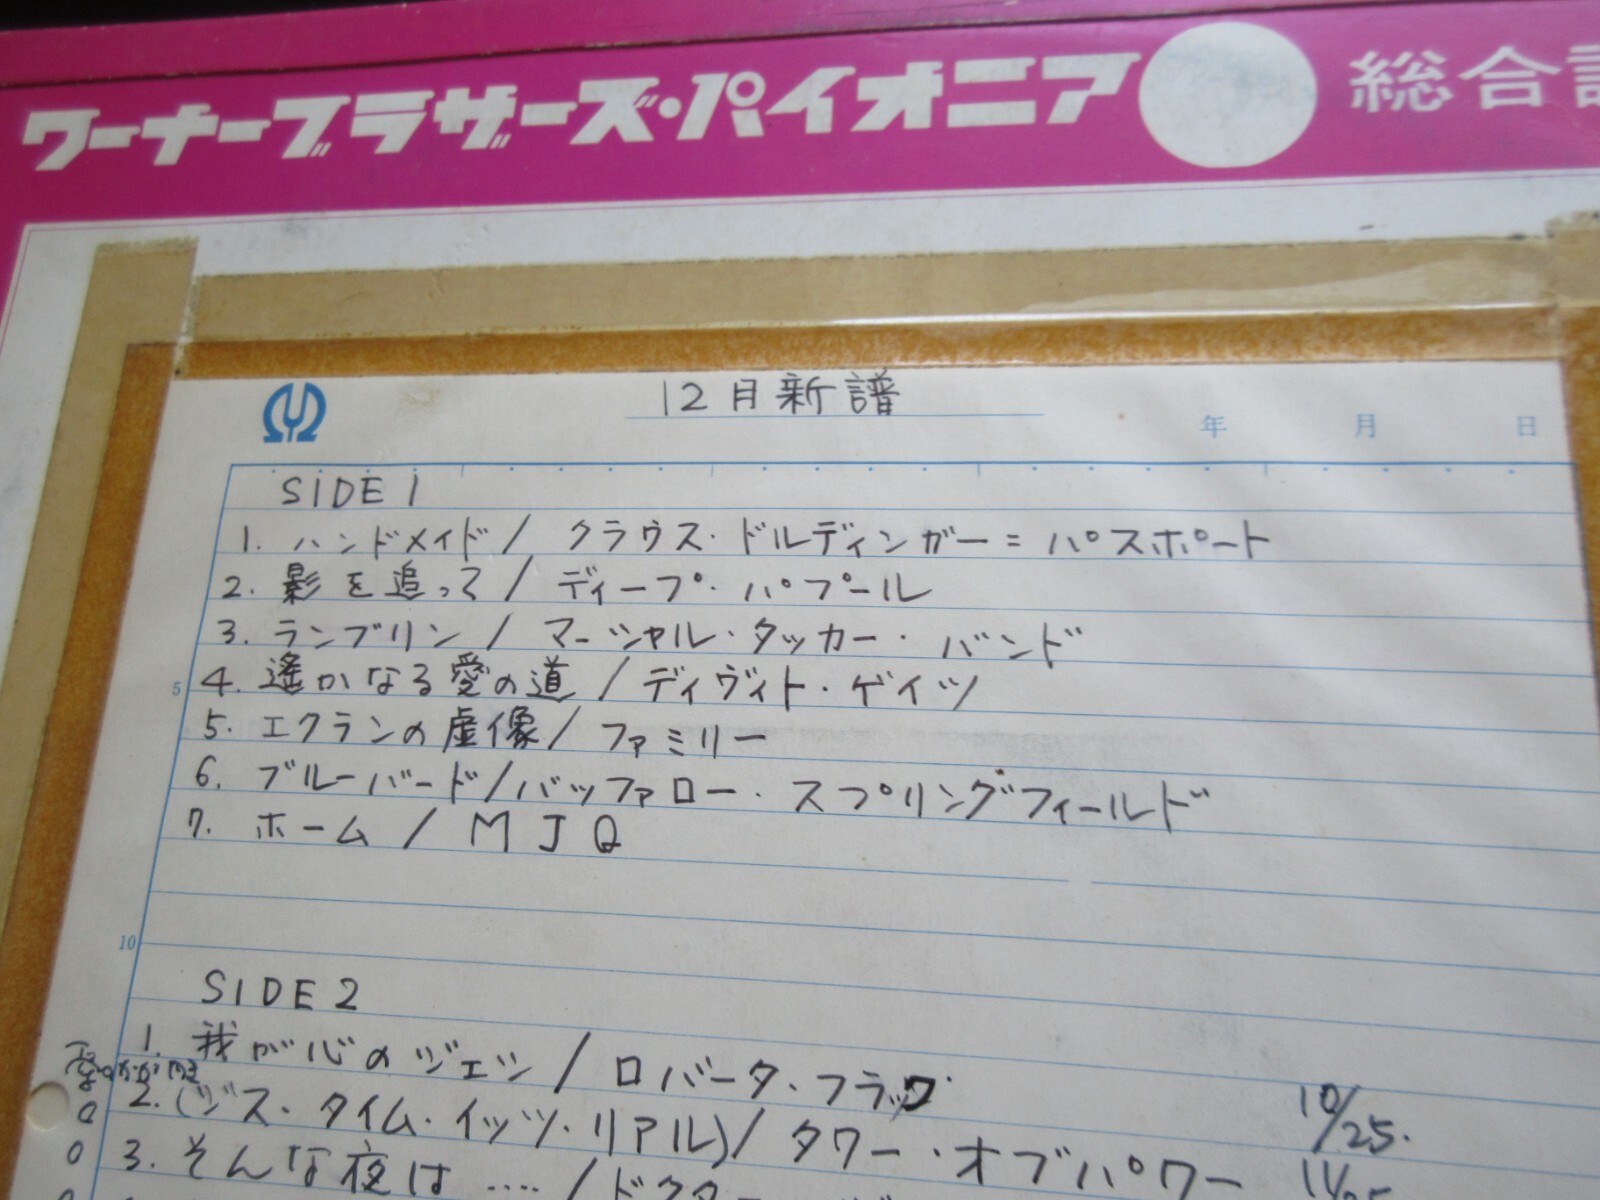 ワーナーブラザーズ・パイオニア 総合
12月新譜
年 月 日
SIDE 1
1. ハンドメイド / クラウス・ドルディンガー = パスポート
2. 影を追って / ディープ・パプール
3. ランブリン / マーシャル・タッカー・バンド
5
4. 遙かなる愛の道 / ディヴィト・ゲイツ
5. エクランの虚像 / ファミリー
6. ブルーバード / バッファロー・スプリングフィールド
7. ホーム / MJQ
10
SIDE 2
1. 我が心のジェシ / ロバータ・フラック
2. (ジス・タイム・イッツ・リアル) / タワー・オブパワー 10/25.
3. そんな夜は ‥‥ / ドクター